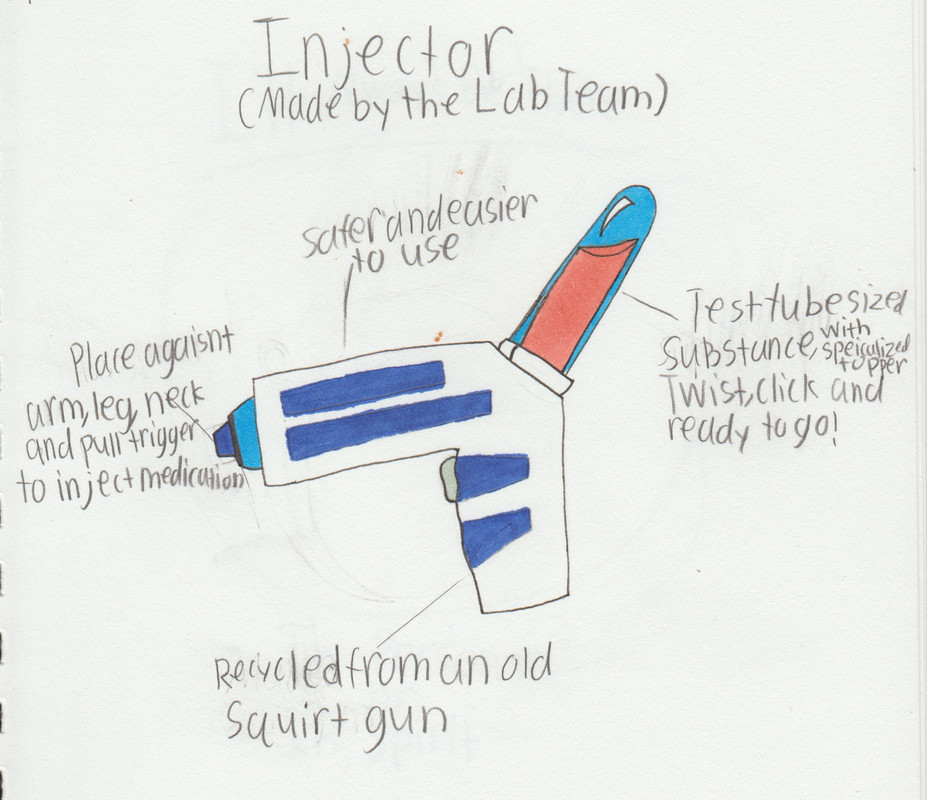 Injector
(Made by the Lab Team)
safer and easier
to use
Place agaisnt
arm, leg, neck
and pull trigger
to inject medication
Test tube sized
substance, with speicalized topper
Twist, click and
ready to go!
Recycled from an old
squirt gun